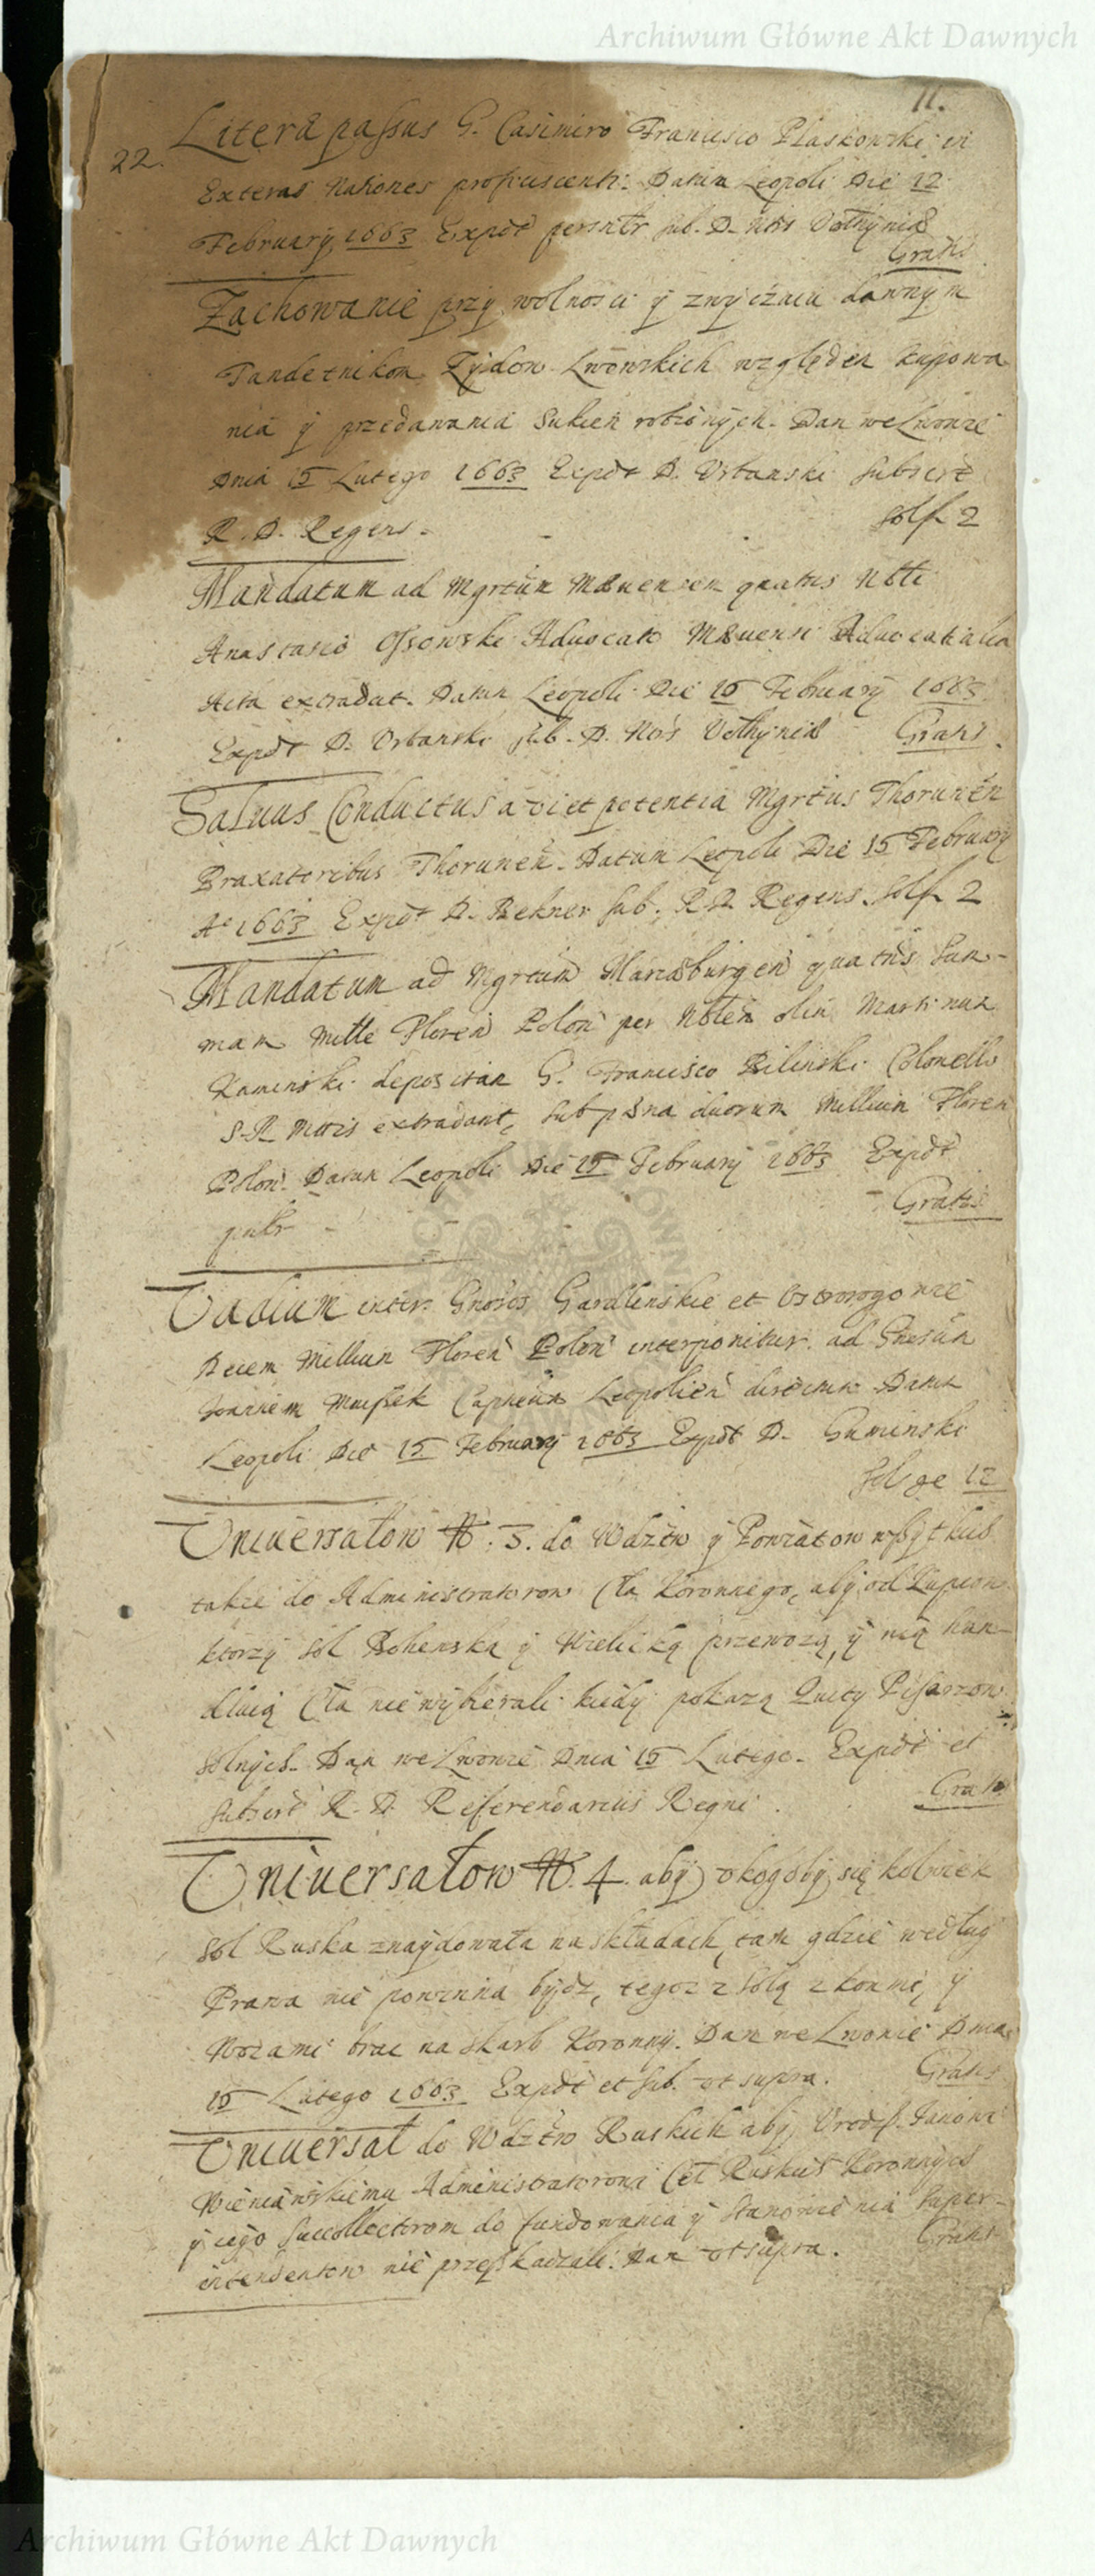 Archiwum Główne Akt Dawnych
11.
22. Litera passus G. Casimiro Francisco Plaskowski in
Exteras Nationes proficiscenti. Datum Leopoli Die 12
February 1663 Expdt per sub. D. Nris Volhyniæ
Gratis
Zachowanie przy wolnosci y zwyczaiu dawnym
Tandetnikom Zydom Lwowskich względem kupowa
nia y przedawania Sukień robionych. Dan we Lwowie
Dnia 15 Lutego 1663 Expdt D. Vrbanski subscrt
R. D. Regens. solt 2
Mandatum ad Mgrtum Mævensem quatus Nbli
Anastasio Ossowski Aduocato Mævensi Aduocatialia
Acta extradat. Datum Leopoli Die 15 February 1663
Expdt D. Vrbanski sub. D. Nos Volhyniæ Gratis
Saluus Conductus a vi et potentia Mgrtus Thorunen
Braxatoribus Thorunen. Datum Leopoli Die 15 February
Ao 1663 Expdt D. Bekner sub. R D Regens. solt 2
Mandatum ad Mgrtum Mariæburgen quatus Sum-
mam Mille Floren Polon per Nblem olim Martinum
Kaminski depositam G. Francisco Bilinski Colonello
S. R. Mttis extradant, sub pæna duorum Millium Floren
Polon. Datum Leopoli Die 15 February 1663 Expdt
Gratis
Vadium inter Gnosos Gardlinskie et Ostrorogowie
Decem Millium Floren Polon interponitur ad Gnosum
Joannem Capneum Leopolien directum Datum
Leopoli Die 15 February 1663 Expdt D. Guminski
12
Uniuersałow N. 3. do Wdztw y Powiatow wszytkich
takze do Administratorow Cła Koronnego, aby od Kupcow
ktorzy sol Bohenską y Wielicką przewozą, y nią han-
dluią Cła nie wybierali kiedy pokazą Quity Pisarzow
solnych. Dan we Lwowie Dnia 15 Lutego. Expdt et
subscrt R. D. Referendarius Regni. Gratis
Uniuersałow N. 4. aby v kogoby się kolwiek
sol Ruska znaydowała na składach, tam gdzie według
Prawa nie powinna bydz, tegoz z solą z konmi, y
Wozami brac na skarb Koronny. Dan we Lwowie Dnia
15 Lutego 1663 Expdt et sub. vt supra. Gratis
Uniuersał do Wdztw Ruskich aby Vrodz. Janowi
Wieniawskiemu Administratorowi Ceł Ruskich Koronnych
y iego Succollectorom do fundowania y stanowienia Super-
intendentow nie przeszkadzali. Dan vt supra. Gratis
Archiwum Główne Akt Dawnych